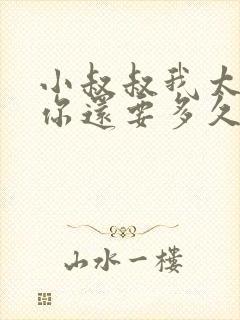 小叔叔我太
你還要多久
山水一樓